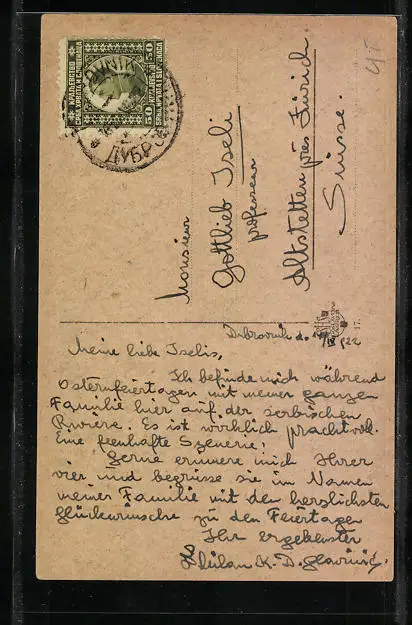 КРАЉЕВСТВО
СРБА ХРВАТА И СЛОВЕНАЦА
50 50
KRALJEVSTVO
SRBA, HRVATA I SLOVENACA
ДУБРО
Monsieur
Gottlieb Iseli
professeur
Altstetten près Zürich.
Suisse.
17.
Dubrovnik d. 922
Meine liebe Iselis,
Ich befinde mich während
Osternfeiertagen mit meiner ganzen
Familie hier auf der serbischen
Riviere. Es ist wirklich prachtvoll.
Eine feenhafte Szenerie!
Gerne erinnere mich Ihrer
vier und begrüsse sie im Namen
meiner Familie mit den herzlichsten
Glückwünsche zu den Feiertagen
Ihr ergebenster
Milan K. D.